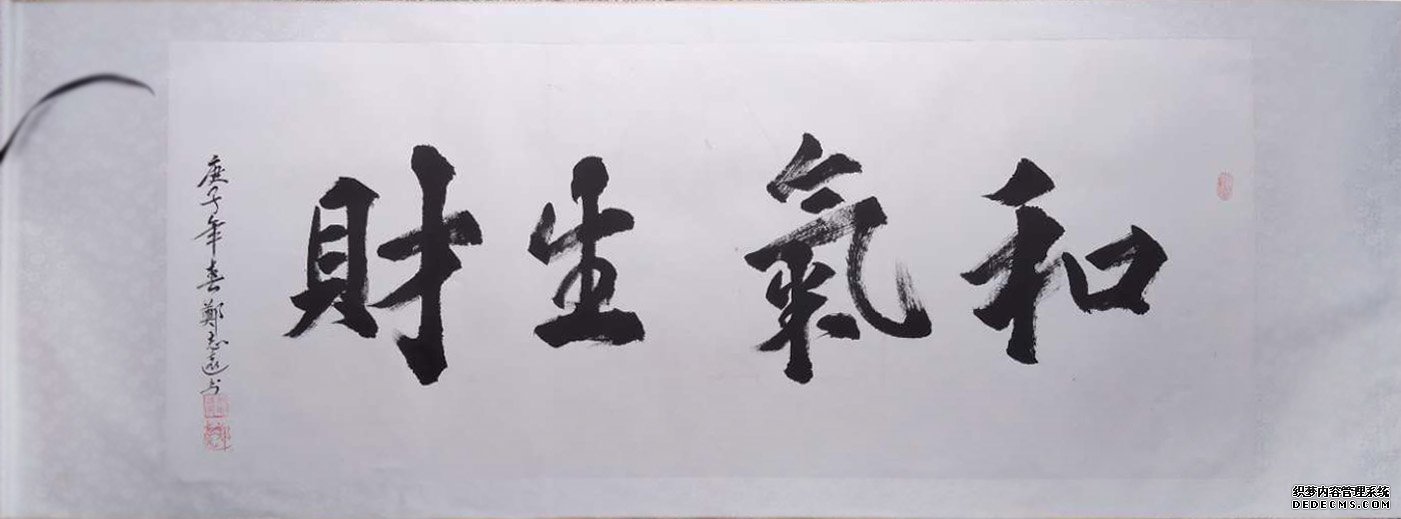 和氣生財
庚子年春鄭志遠书
织梦内容管理系统
DEDECMS.COM